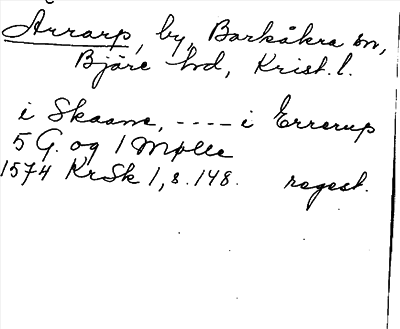 Ärrarp, by, Barkåkra sn,
Bjäre hd, Krist. l.
i Skaane, ---- i Errerup
5 G. og 1 Mølle
1574 KrSk 1, s. 148. regest.